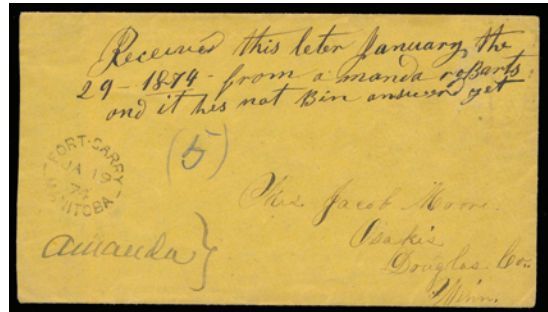 Received this leter January the
29 - 1874 - from a manda roBarts
and it hes not Bin answerd yet
(5)
FORT-GARRY
JA 19
74
MANITOBA
amanda }
Jacob Moore
Osakis
Douglas Co.
Minn.